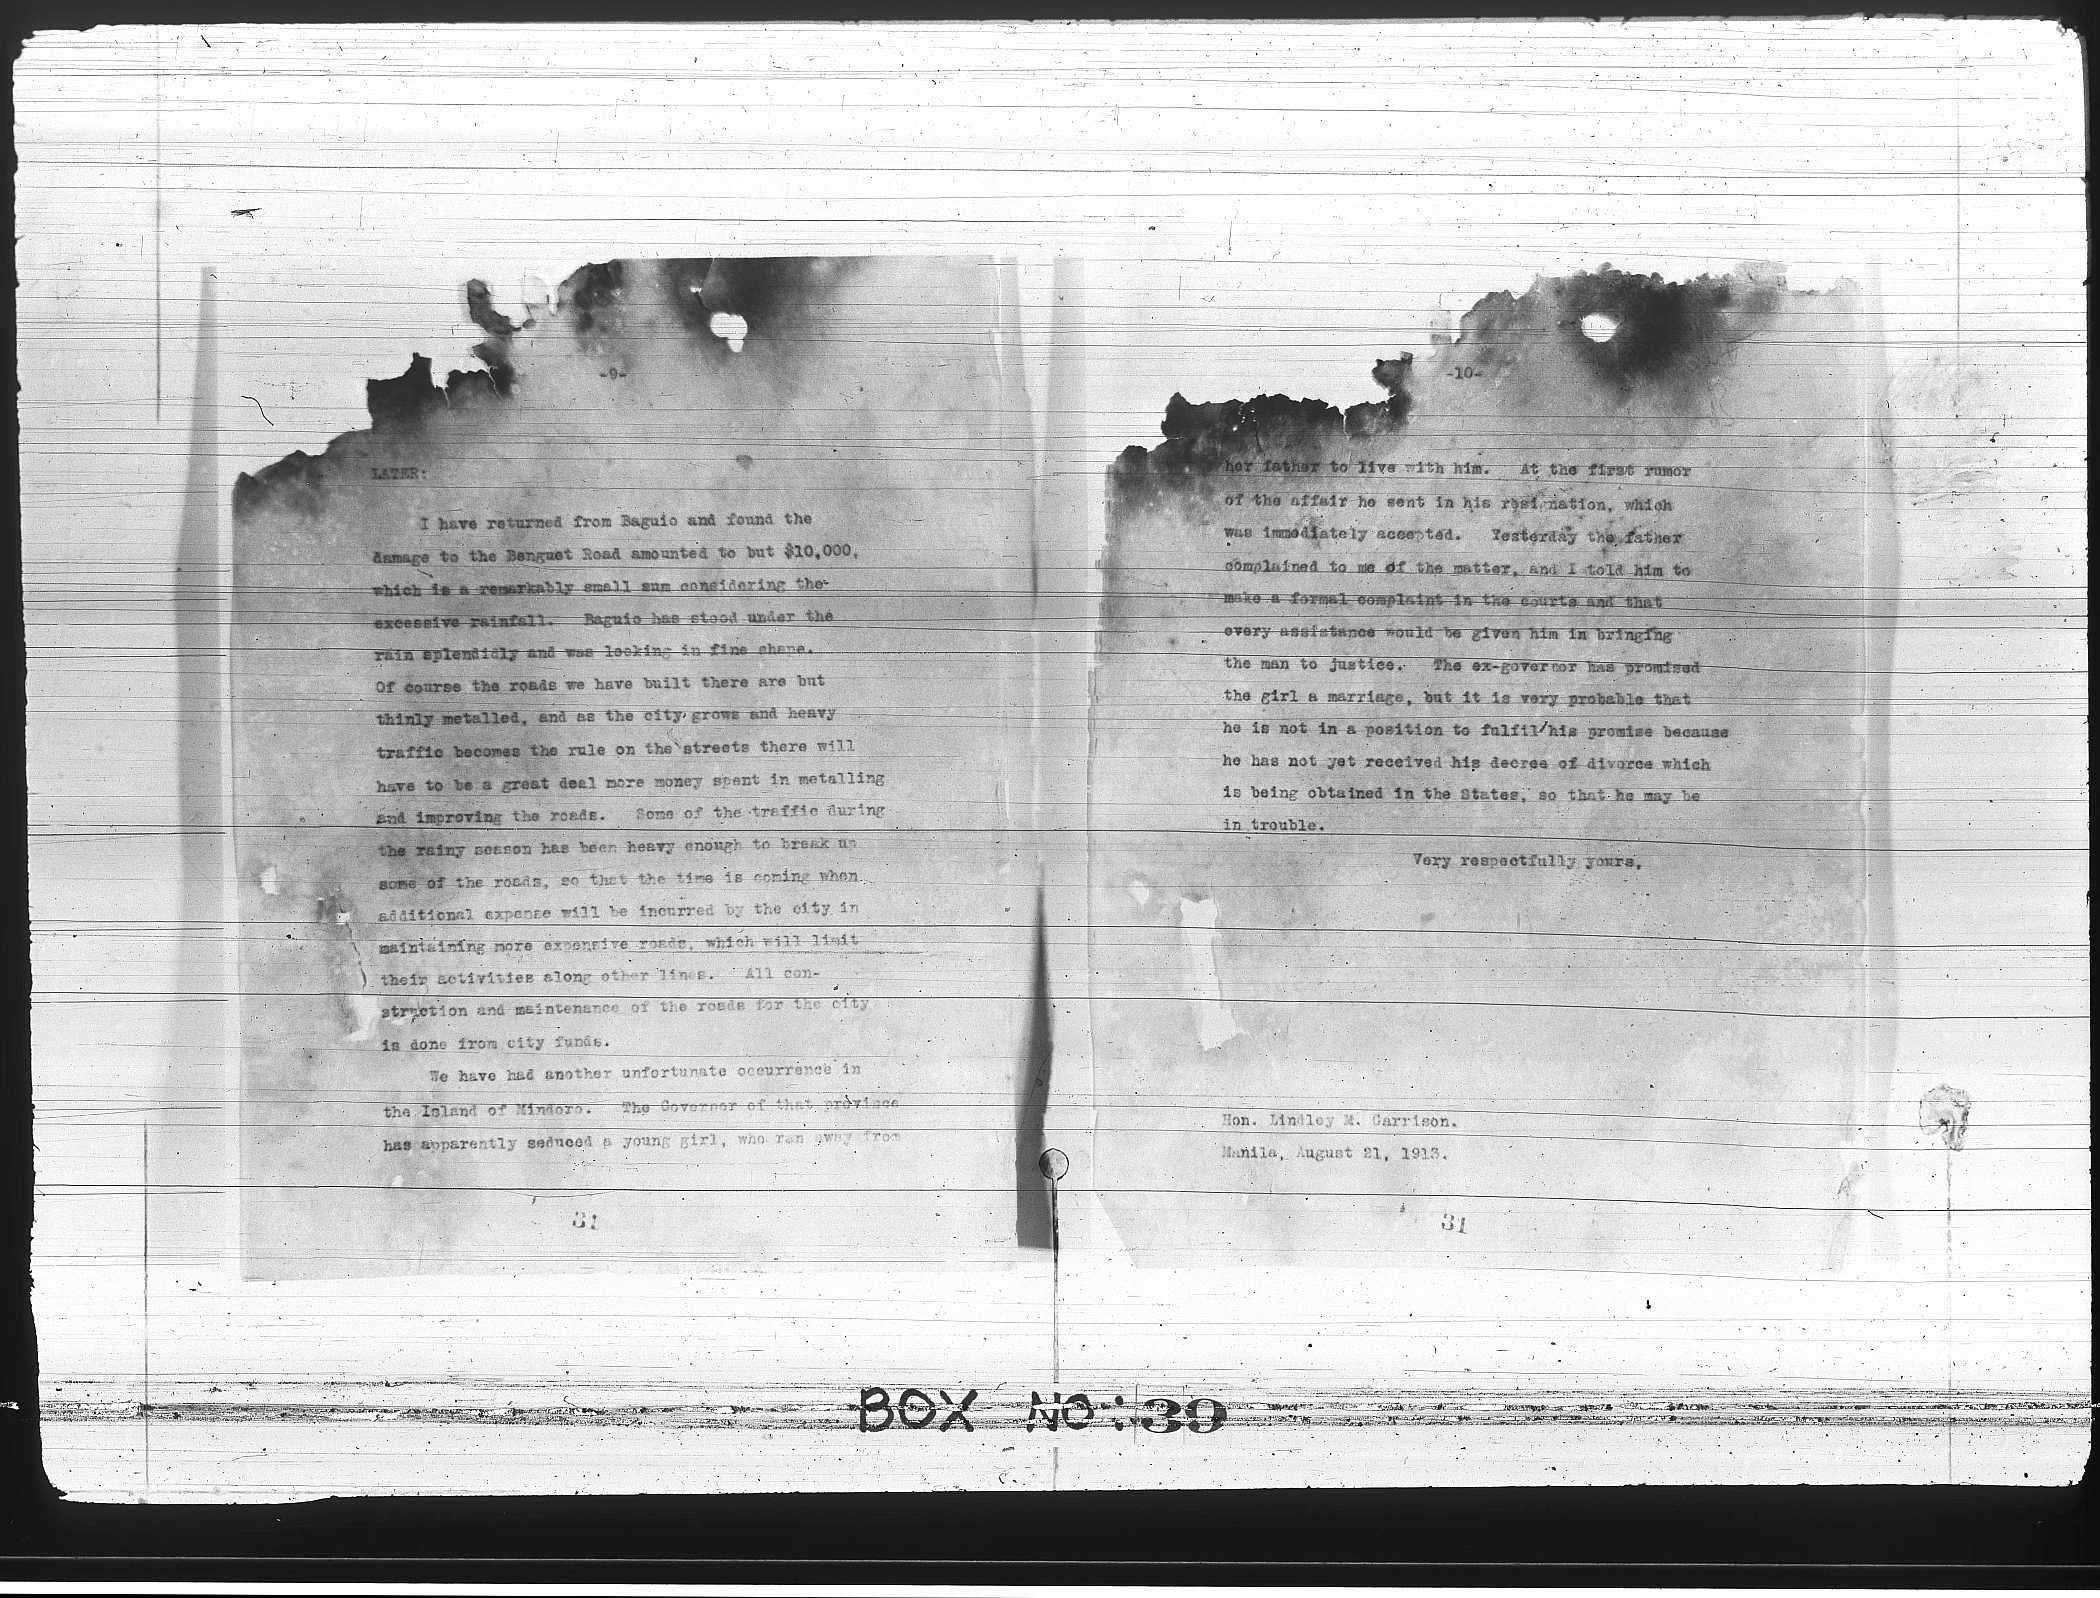 -9-
LATER:
I have returned from Baguio and found the
damage to the Benguet Road amounted to but $10,000,
which is a remarkably small sum considering the
excessive rainfall. Baguio has stood under the
rain splendidly and was looking in fine shape.
Of course the roads we have built there are but
thinly metalled, and as the city grows and heavy
traffic becomes the rule on the streets there will
have to be a great deal more money spent in metalling
and improving the roads. Some of the traffic during
the rainy season has been heavy enough to break up
some of the roads, so that the time is coming when
additional expense will be incurred by the city in
maintaining more expensive roads, which will limit
their activities along other lines. All con-
struction and maintenance of the roads for the city
is done from city funds.
We have had another unfortunate occurrence in
the Island of Mindoro. The Governor of that province
has apparently seduced a young girl, who ran away from
31
-10-
her father to live with him. At the first rumor
of the affair he sent in his resignation, which
was immediately accepted. Yesterday the father
complained to me of the matter, and I told him to
make a formal complaint in the courts and that
every assistance would be given him in bringing
the man to justice. The ex-governor has promised
the girl a marriage, but it is very probable that
he is not in a position to fulfil/his promise because
he has not yet received his decree of divorce which
is being obtained in the States, so that he may be
in trouble.
Very respectfully yours,
Hon. Lindley M. Garrison.
Manila, August 21, 1913.
31
BOX NO: 39